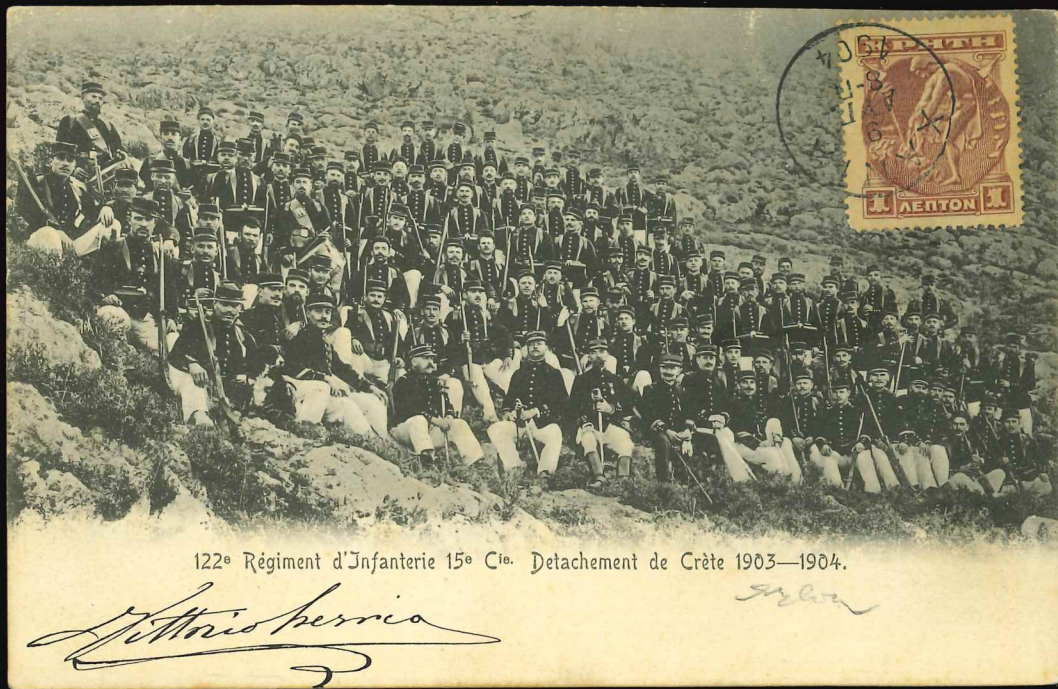 ΚΡΗΤΗ
1 ΛΕΠΤΟΝ 1
1904
122e Régiment d'Infanterie 15e Cie. Detachement de Crète 1903—1904.
Vittorio